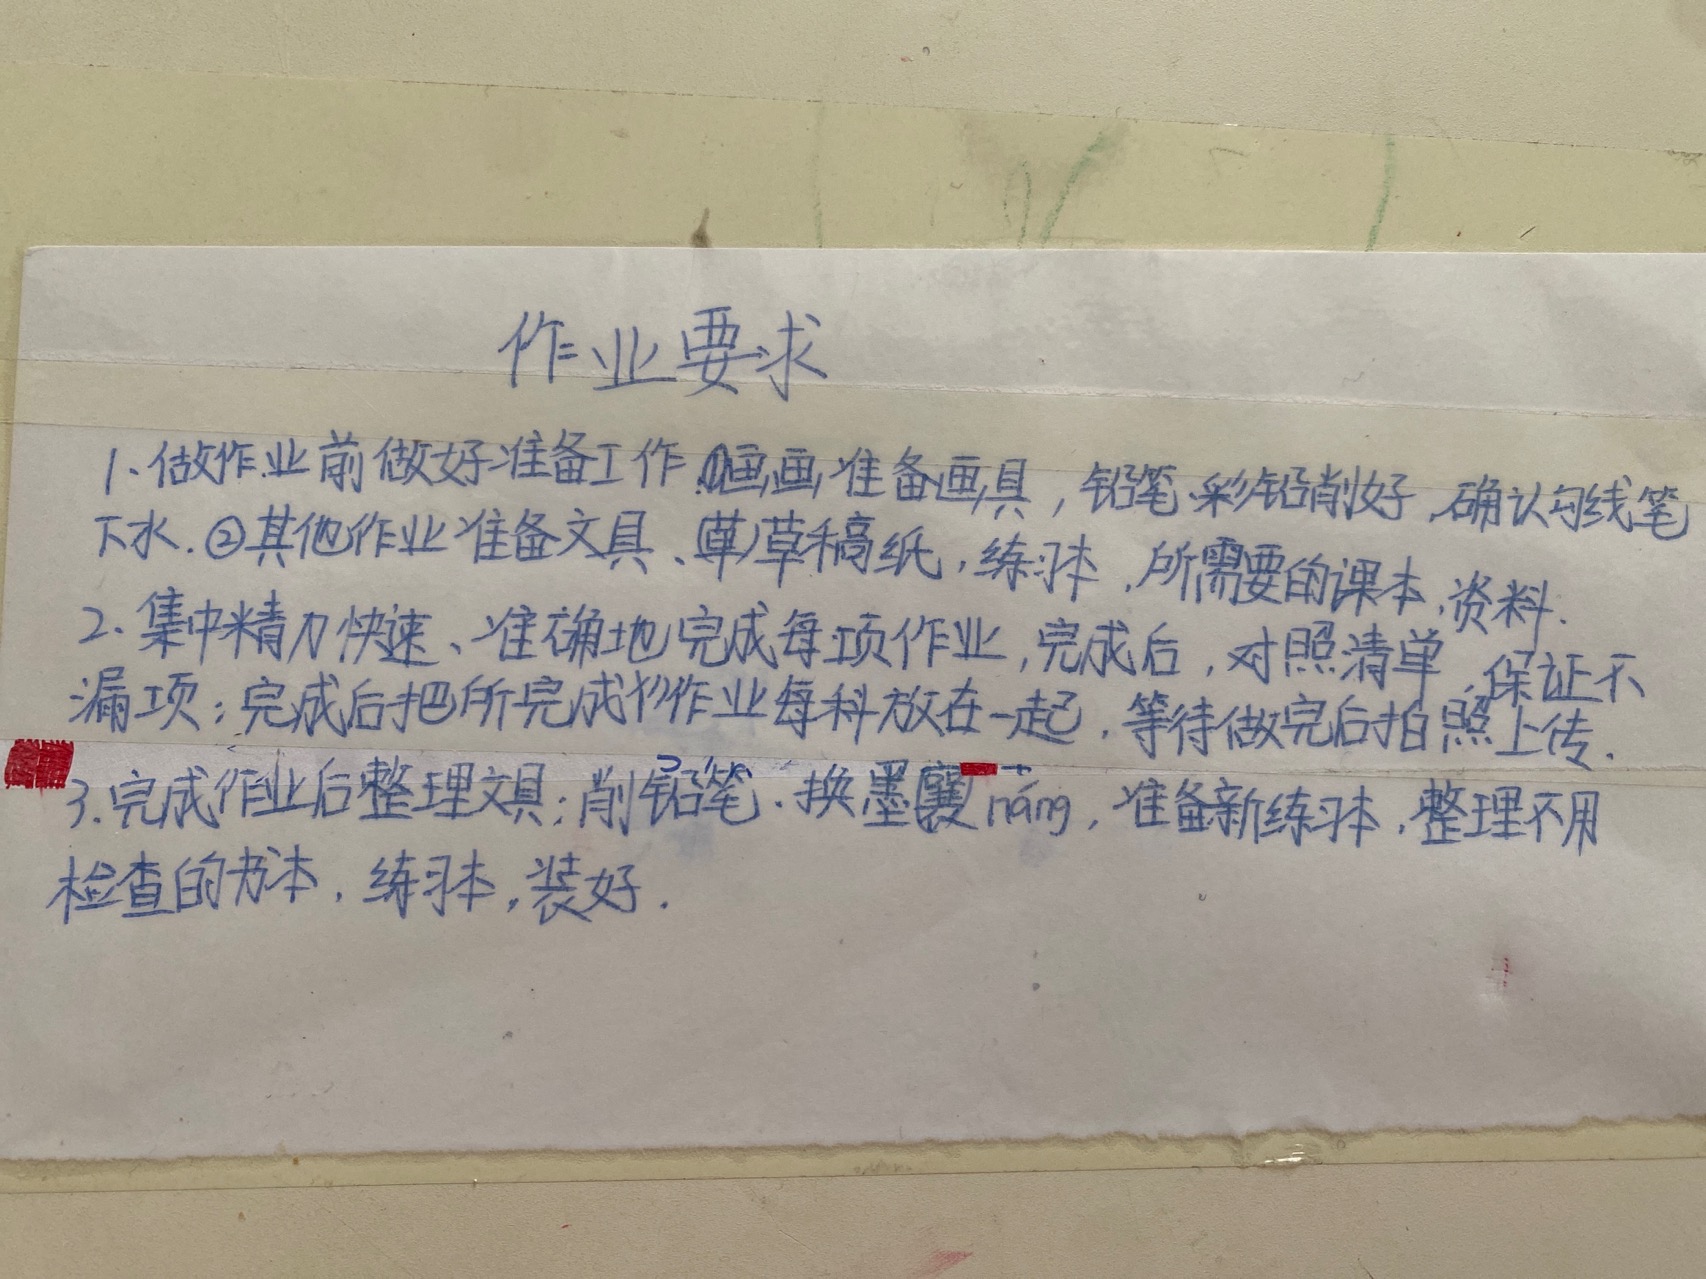 作业要求
1、做作业前做好准备工作.①画画准备画具，铅笔、彩铅削好，确认勾线笔
下水.②其他作业准备文具、草草稿纸，练习本，所需要的课本，资料.
2、集中精力快速、准确地完成每项作业，完成后，对照清单，保证不
漏项；完成后把所完成的作业每科放在一起，等待做完后拍照上传.
3.完成作业后整理文具；削铅笔.换墨囊náng，准备新练习本，整理不用
检查的书本，练习本，装好.